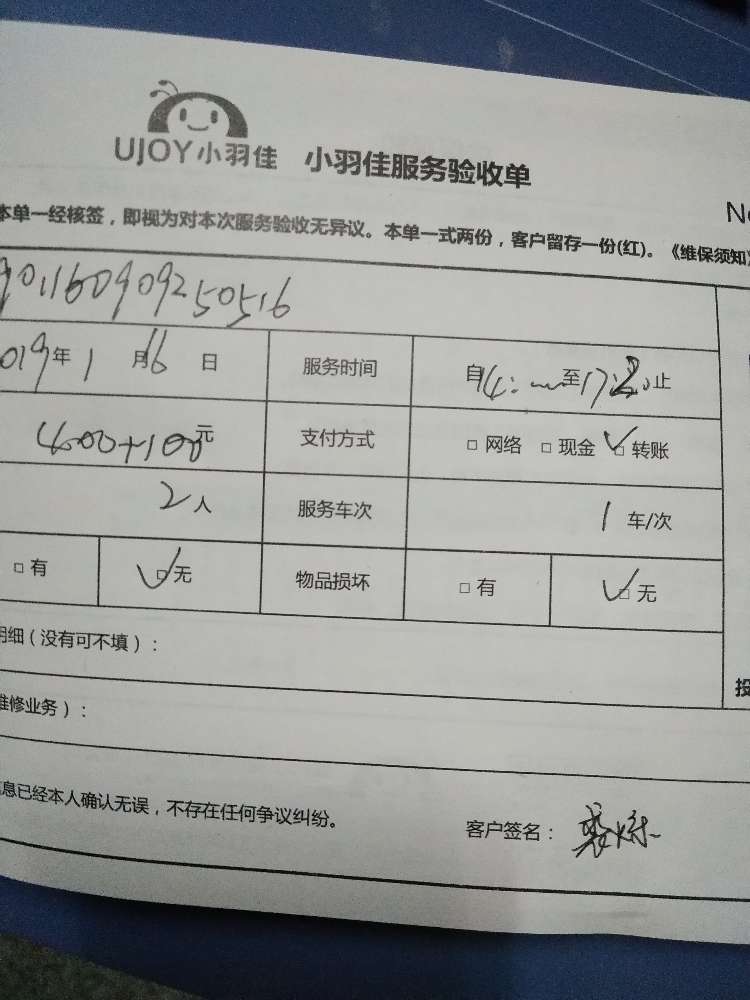 UJOY小羽佳 小羽佳服务验收单
本单一经核签，即视为对本次服务验收无异议。本单一式两份，客户留存一份(红)。《维保须知》
901160909250516
019年1月16日 服务时间 自14: 至17: 止
400+100元 支付方式 □网络 □现金 ✓□转账
2人 服务车次 1车/次
□有 ✓□无 物品损坏 □有 ✓□无
明细（没有可不填）：
维修业务）：
息已经本人确认无误，不存在任何争议纠纷。
客户签名：